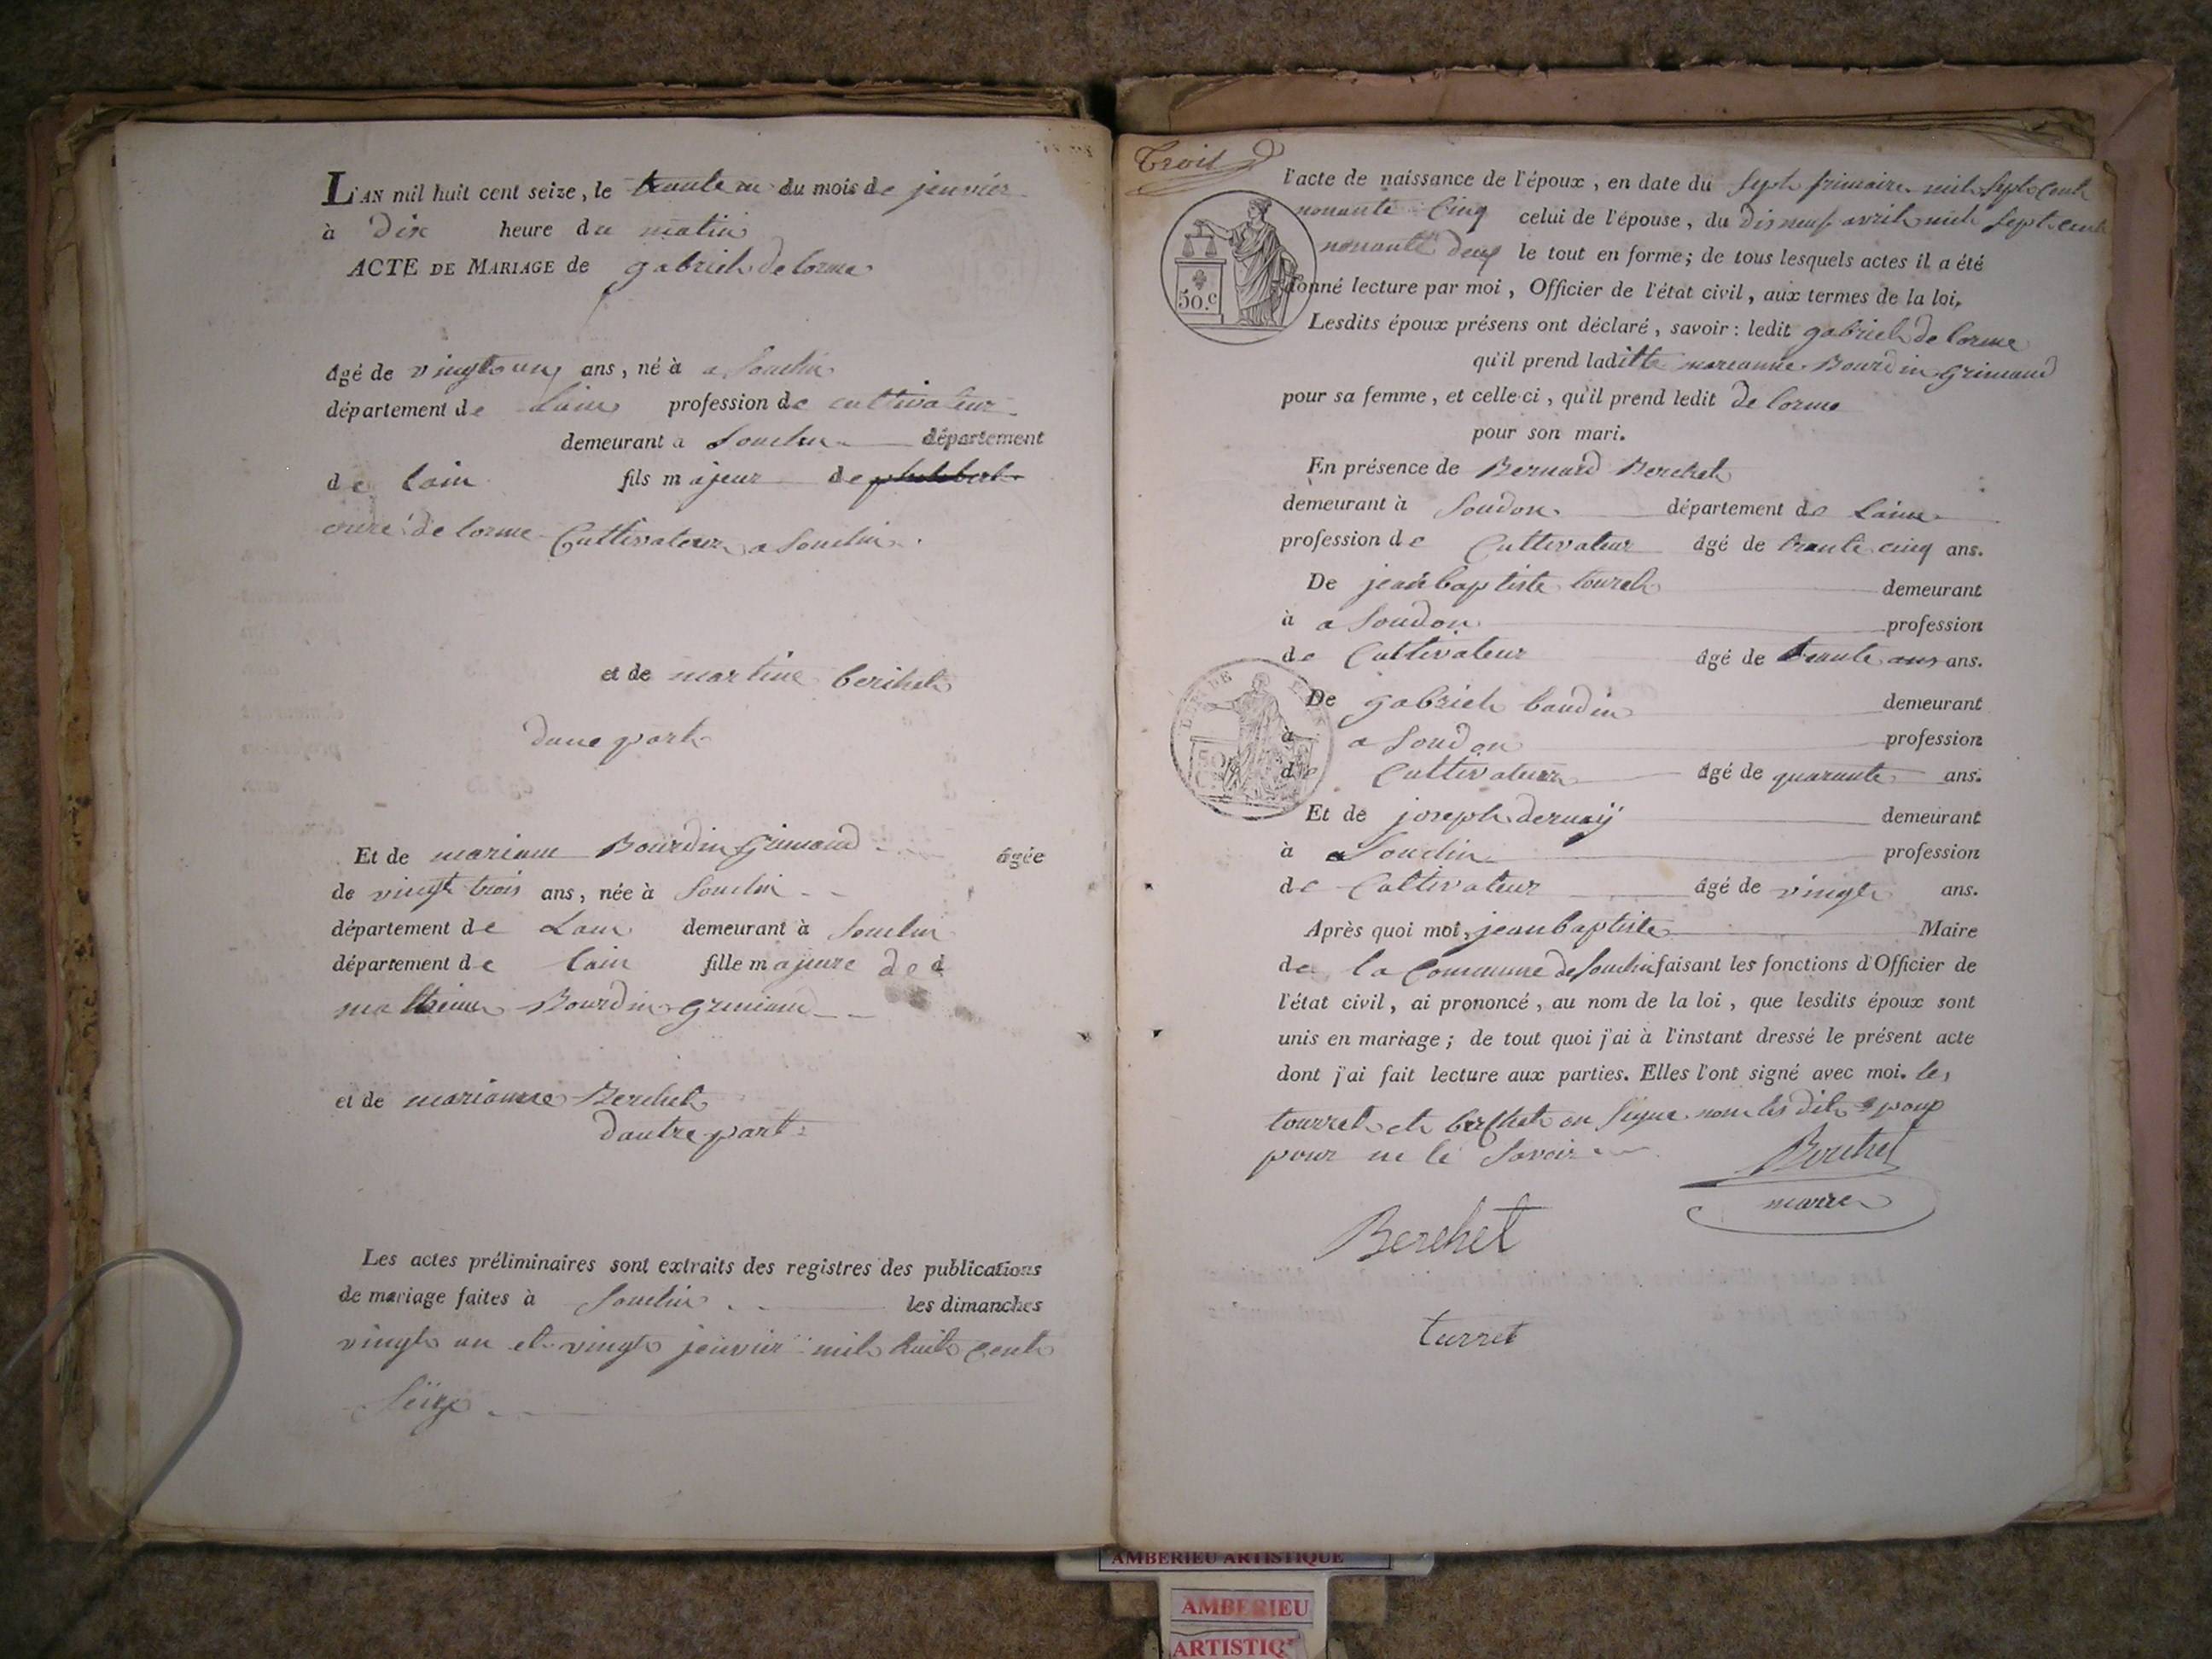 L'AN mil huit cent seize, le trante un du mois de jenvier
à Dix heure du matin
ACTE DE MARIAGE de gabriel de lorme
âgé de vingt ans, né à a Souclin
département de Lain profession de cultivateur
demeurant à Souclin département
de Lain fils majeur de philibert
de lorme Cultivateur a Souclin.
et de martine berchet
dune part
Et de mariane Bourdin Grimaud âgée
de vingt trois ans, née à Souclin
département de Lain demeurant à Souclin
département de Lain fille majeure de
mathieu Bourdin grimaud
et de marianne Berchet
dautre part
Les actes préliminaires sont extraits des registres des publications
de mariage faites à Souclin les dimanches
vingt un et vingt jenvier mil huit cent
Seize
Troit
l'acte de naissance de l'époux, en date du Sept frimaire mil Sept Cent
nonante Cinq celui de l'épouse, du Dis neuf avril mil Sept cent
nonante deux le tout en forme; de tous lesquels actes il a été
donné lecture par moi, Officier de l'état civil, aux termes de la loi,
50.c
Lesdits époux présens ont déclaré, savoir: ledit gabriel de lorme
qu'il prend laditte marianne Bourdin Grimaud
pour sa femme, et celle-ci, qu'il prend ledit De lorme
pour son mari.
En présence de Bernard Berchet
demeurant à Soudon département de Lain
profession de Cultivateur âgé de trante cinq ans.
De jean baptiste touret demeurant
à a Soudon profession
de Cultivateur âgé de trante ans ans.
De gabriel baudin demeurant
à a Soudon profession
de Cultivateur âgé de quarante ans.
50
Et de joseph demeurant
à a Souclin profession
de Cultivateur âgé de vingt ans.
Après quoi moi, jean baptiste Maire
de la Commune de Souclin faisant les fonctions d'Officier de
l'état civil, ai prononcé, au nom de la loi, que lesdits époux sont
unis en mariage; de tout quoi j'ai à l'instant dressé le présent acte
dont j'ai fait lecture aux parties. Elles l'ont signé avec moi. les
tourret et berchet on Signe non les dit epoux
pour ne le Savoir
Berchet
maire
Berchet
turret
AMBERIEU ARTISTIQUE
AMBERIEU
ARTISTIQ